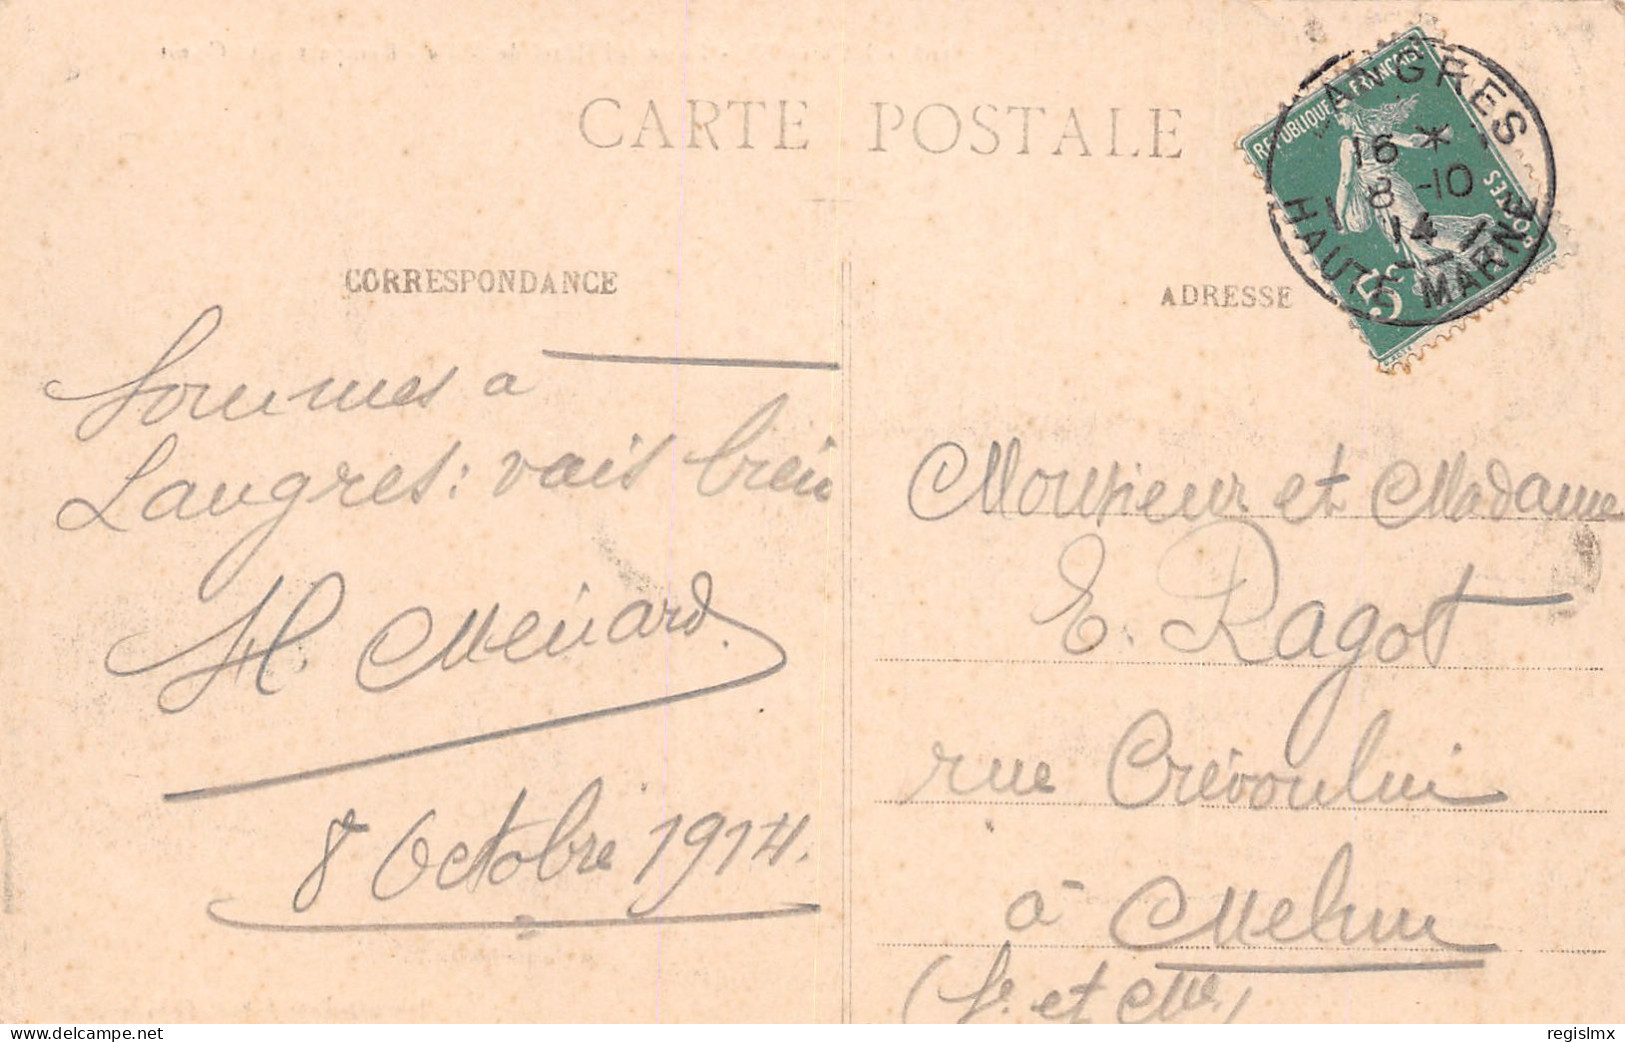 CARTE POSTALE
CORRESPONDANCE
Sommes a
Langres: vais bien
H. Menard
8 Octobre 1914.
ADRESSE
REPUBLIQUE FRANÇAISE
POSTES
5c
LANGRES
16 *
8 -10
14
HAUTE MARNE
Monsieur et Madame
E. Ragot
rue Crévoulin
à Melun
(Se. et Me.)
regislmx